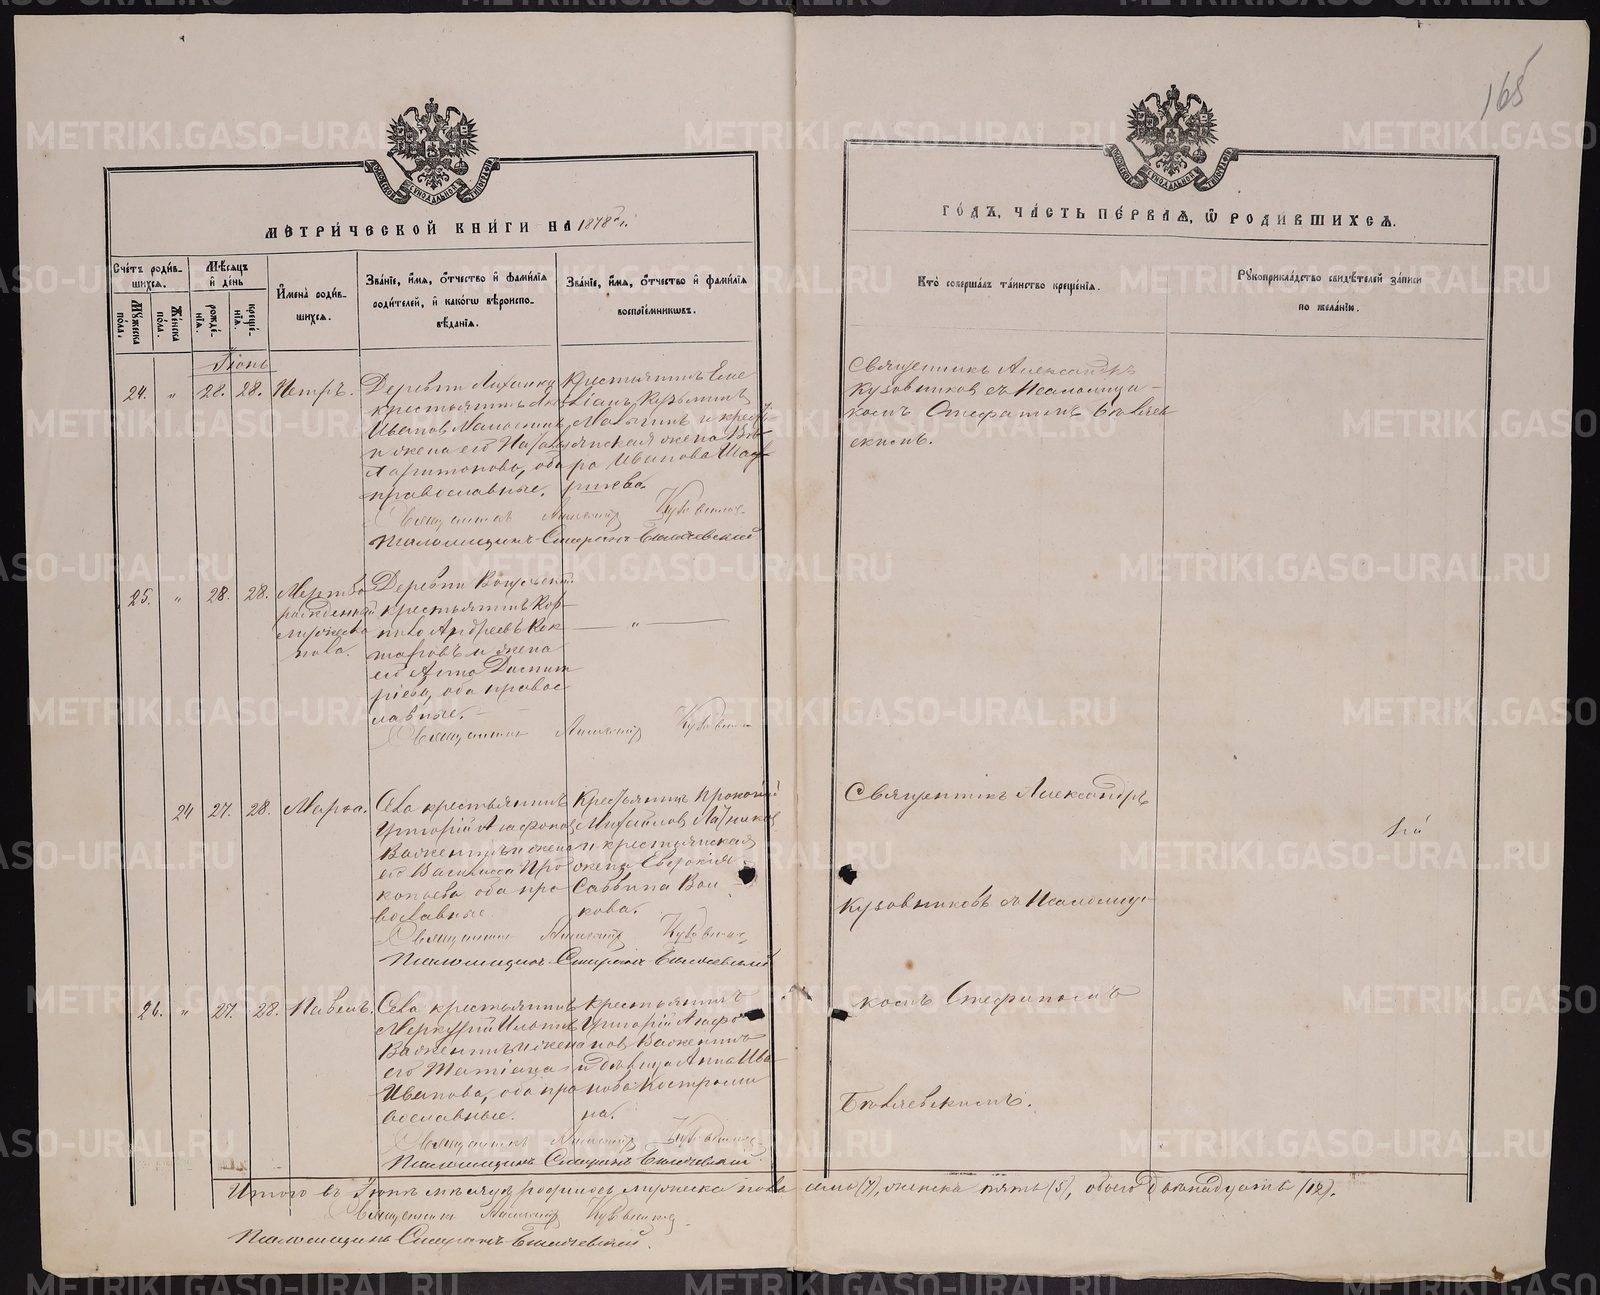 165
МЕТРИЧЕСКОЙ КНИГИ НА 1878 г.
ГОДЪ, ЧАСТЬ ПЕРВАЯ, Ѡ РОДИВШИХСЯ.
Счетъ родив-
шихся.
Мужеска пола.
Женска пола.
Мѣсяцъ
и день
рожде-
нія.
креще-
нія.
Имена родив-
шихся.
Званіе, имя, отчество и фамилія
родителей, и какогѡ вѣроиспо-
вѣданія.
Званіе, имя, отчество и фамилія
воспріемниковъ.
Кто совершалъ таинство крещенія.
Рукоприкладство свидѣтелей записи
по желанію.
Іюнь
24. " 28. 28. Петръ.
Деревни
крестьянинъ
Иванов
и жена его
Харитонова, оба
православные.
Крестьянинъ Еме
ліанъ Кузьминъ
и кресть
янская жена Вар
ра Иванова Шад
рина.
Священникъ Александръ
Кузовниковъ съ Псаломщи-
комъ Стефаномъ Бѣляев
скимъ.
Священникъ Александръ Кузовников
Псаломщикъ Стефанъ Бѣляевский
25. " 28. 28. Мертво
рожденный
мужеска
пола.
Деревни
крестьянинъ Кор-
нило Андреевъ Кок
шаровъ и жена
его Анна Димит
ріева, оба правос
лавные.
— " —
Священникъ Александръ Кузовников
24 27. 28. Марѳа.
Села крестьянинъ
Григорій Агафонов
Важенинъ и жена
его Василисса Про
копьева оба пра
вославные.
Крестьянинъ Прокопій
Михайлов
и крестьянская
жена Евдокія
Саввина Вол
кова.
Священникъ Александръ
Кузовниковъ съ Псаломщи-
комъ Стефаномъ
Бѣляевскимъ.
Священникъ Александръ Кузовников
Псаломщикъ Стефанъ Бѣляевский
26. " 27. 28. Павелъ.
Села крестьянинъ
Меркурій
Важенинъ и жена
его Татіана
Иванова, оба пра
вославные.
Крестьянинъ
Григорій Агафо
нов Важенинъ
и дѣвица Анна Ива
нова Костроми
на.
Священникъ Александръ Кузовников
Псаломщикъ Стефанъ Бѣляевский
Итого въ Іюнѣ мѣсяцѣ родилось мужеска пола семь (7), женска пять (5), обоего двѣнадцать (12).
Священникъ Александръ Кузовников
Псаломщикъ Стефанъ Бѣляевский.
METRIKI.GASO-URAL.RU